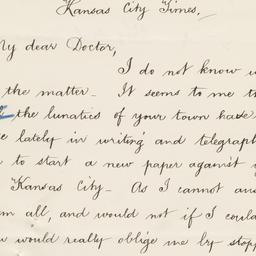 Kansas City Times,
My dear Doctor,
I do not know w
the matter - It seems to me th
the lunatics of your town have
lately in writing and telegraph
to start a new paper against
Kansas City - As I cannot an
all, and would not if I could
would really oblige me by stopp